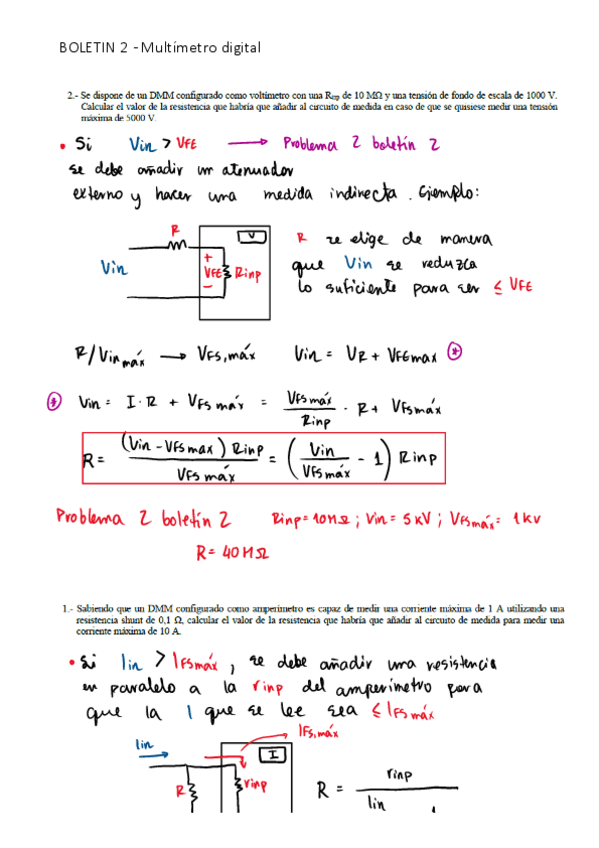 BOLETIN 2 - Multímetro digital
2.- Se dispone de un DMM configurado como voltímetro con una Rinp de 10 MΩ y una tensión de fondo de escala de 1000 V.
Calcular el valor de la resistencia que habría que añadir al circuito de medida en caso de que se quisiese medir una tensión
máxima de 5000 V.
• Si Vin > VFE → Problema 2 boletín 2
se debe añadir un atenuador
externo y hacer una medida indirecta. Ejemplo:
R
V
Vin
+
VFE
-
Rinp
R se elige de manera
que Vin se reduzca
lo suficiente para ser ≤ VFE
R/Vin máx → VFS,máx Vin = VR + VFEmax *
* Vin = I·R + VFS máx = VFS máx / Rinp · R + VFS máx
R = (Vin - VFS max) Rinp / VFS máx = (Vin / VFS máx - 1) Rinp
Problema 2 boletín 2 Rinp = 10MΩ ; Vin = 5 kV ; VFS máx = 1 kV
R = 40 MΩ
1.- Sabiendo que un DMM configurado como amperímetro es capaz de medir una corriente máxima de 1 A utilizando una
resistencia shunt de 0,1 Ω, calcular el valor de la resistencia que habría que añadir al circuito de medida para medir una
corriente máxima de 10 A.
• Si Iin > IFS máx , se debe añadir una resistencia
en paralelo a la rinp del amperímetro para
que la I que se lee sea ≤ IFS máx
Iin
IFS,máx
I
R
rinp
R = rinp
Iin